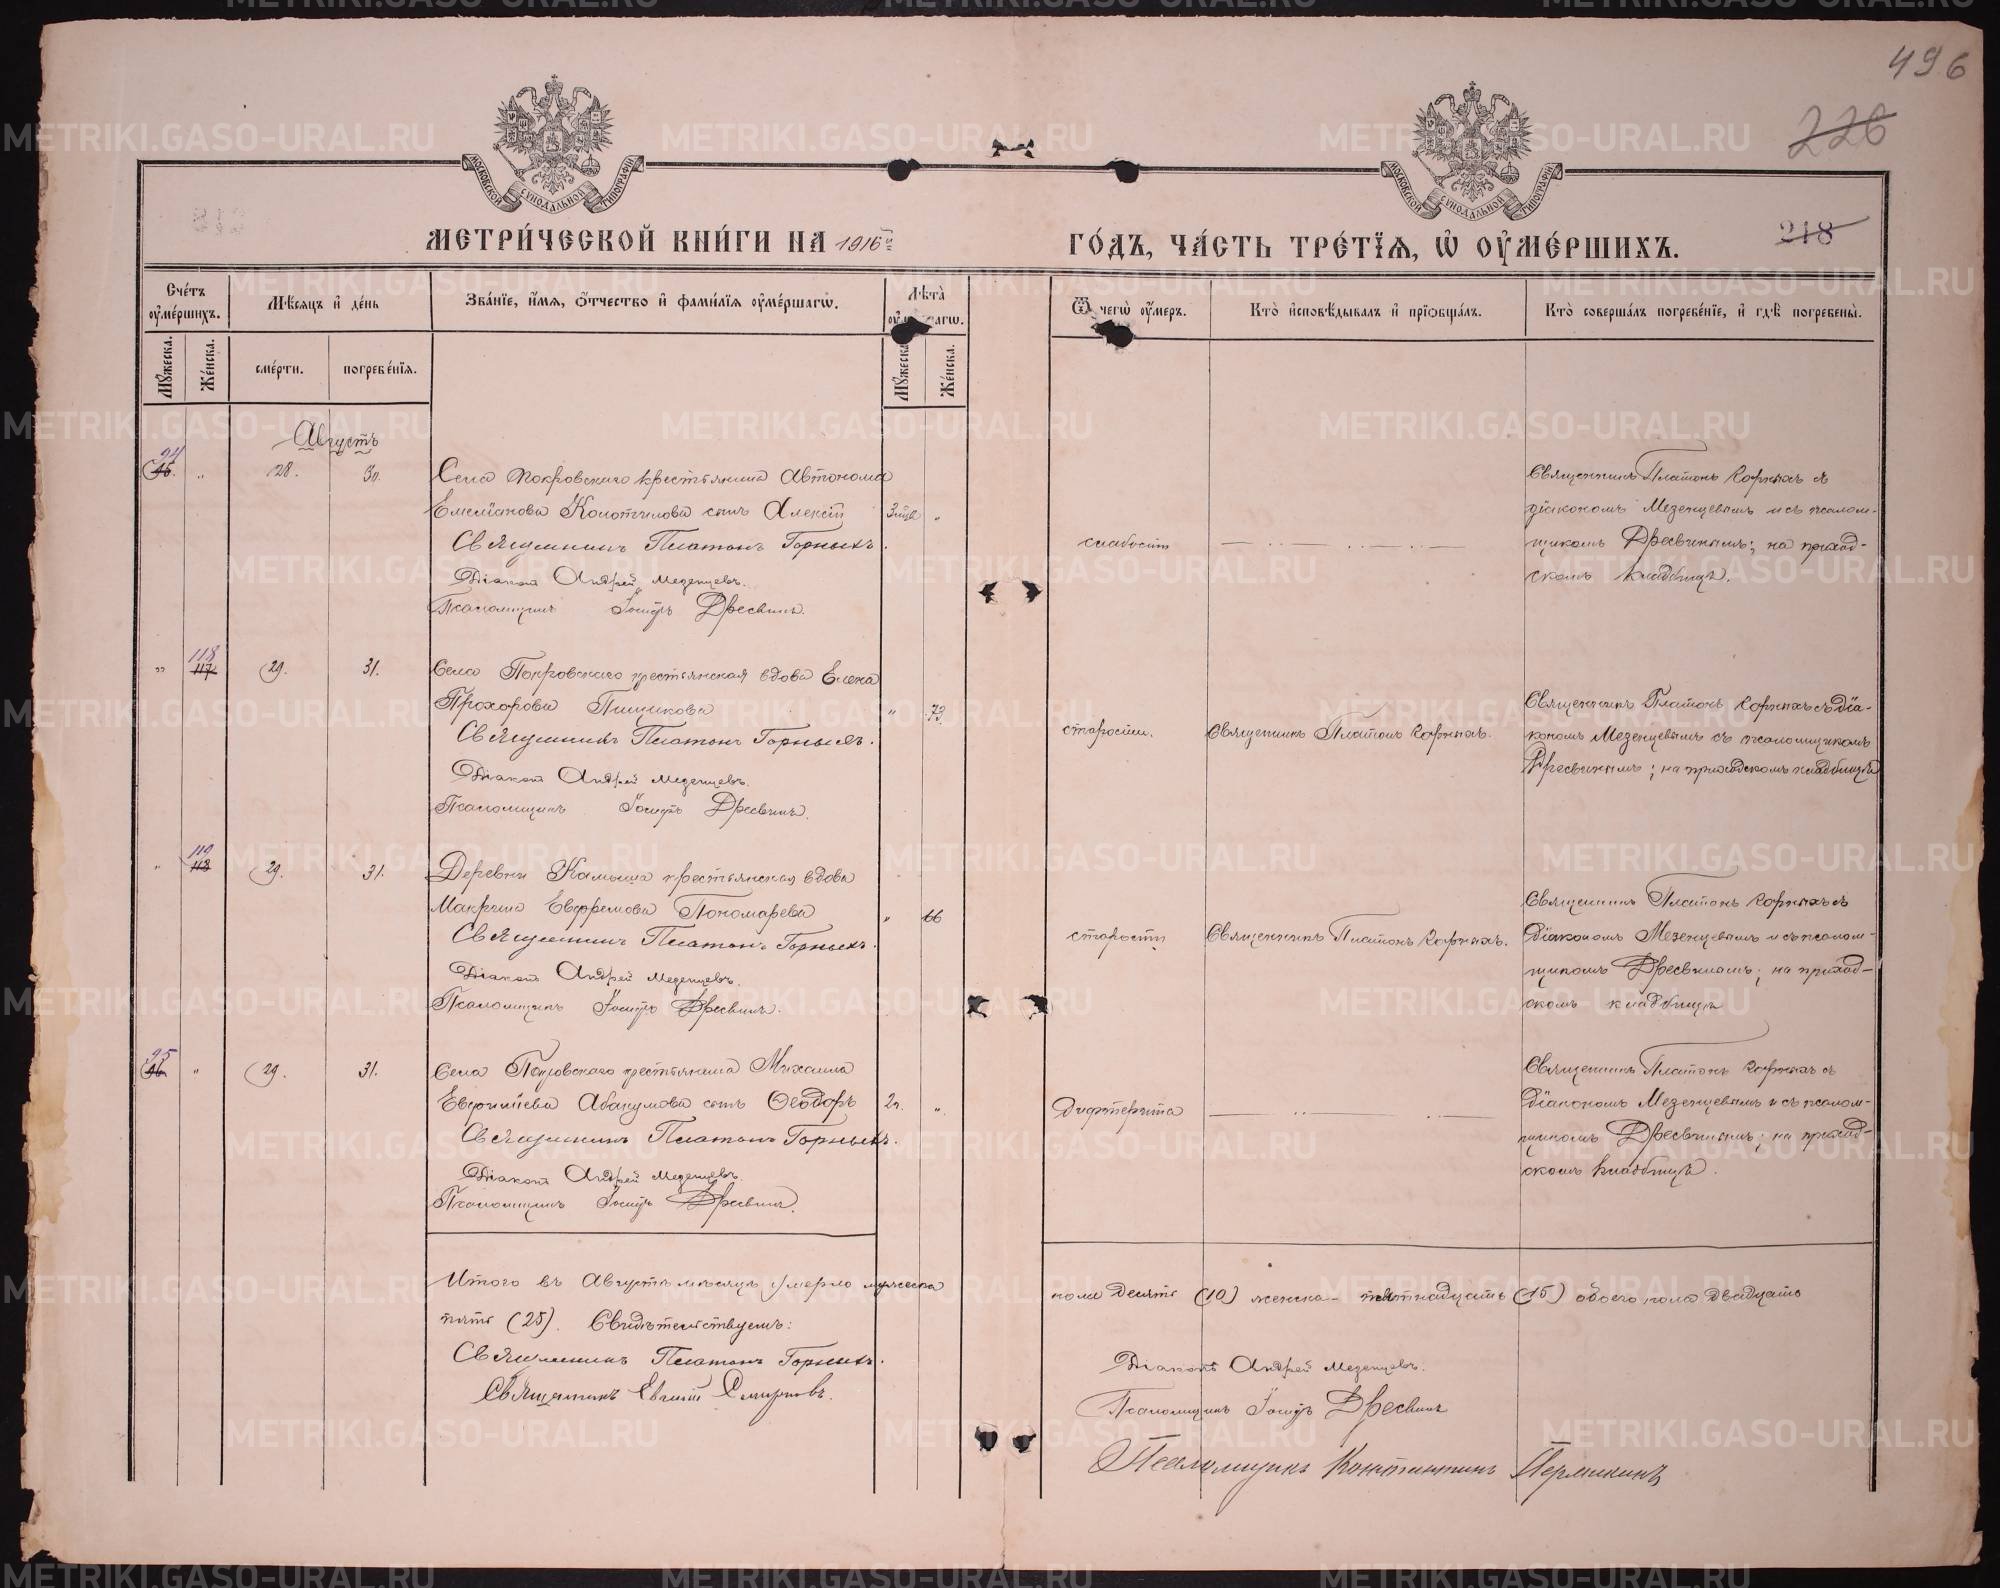 496
226
218
МОСКОВСКОЙ СѴНОДАЛЬНОЙ ТИПОГРАФІИ
МОСКОВСКОЙ СѴНОДАЛЬНОЙ ТИПОГРАФІИ
МЕТРИ́ЧЕСКОЙ КНИ́ГИ НА 1916й
ГО́ДЪ, ЧА́СТЬ ТРЕ́ТІѦ, Ѡ ОУМЕ́РШИХЪ.
Сче́тъ оуме́ршихъ.
Мѣ́сяцъ и де́нь
Зва́ніе, и́мя, о́тчество и фами́лія оуме́ршагѡ.
Лѣта̀ оум агѡ.
Ѿ чегѡ̀ оу́меръ.
Кто̀ исповѣ́дывалъ и пріобща́лъ.
Кто̀ соверша́лъ погребе́ніе, и гдѣ̀ погребены̀.
Мꙋ́жеска.
Же́нска.
сме́рти.
погребе́нія.
Мꙋ́жеска
Же́нска.
Августъ
94
95. " 28. 30. Села Покровскаго крестьянина Автонома
Емеліанова Колотилова сынъ Алексій 3 мѣс "
Священникъ Платонъ Горныхъ.
Діаконъ Андрей Мезенцевъ.
Псаломщикъ Іосифъ Дресвинъ.
слабости
Священникъ Платонъ Горныхъ съ
діакономъ Мезенцевымъ и съ псалом-
щикомъ Дресвинымъ; на приход-
скомъ кладбищѣ.
118
" 117 29. 31. Села Покровскаго крестьянская вдова Елена
Прохорова Пищикова " 73.
Священникъ Платонъ Горныхъ.
Діаконъ Андрей Мезенцевъ.
Псаломщикъ Іосифъ Дресвинъ.
старости. Священникъ Платонъ Горныхъ.
Священникъ Платонъ Горныхъ съ діа-
кономъ Мезенцевымъ съ псаломщикомъ
Дресвинымъ; на приходскомъ кладбищѣ
119
" 118 29. 31. Деревни Камыша крестьянская вдова
Макрина Евфремова Пономарева " 66
Священникъ Платонъ Горныхъ.
Діаконъ Андрей Мезенцевъ.
Псаломщикъ Іосифъ Дресвинъ.
старости Священникъ Платонъ Горныхъ.
Священникъ Платонъ Горныхъ съ
діакономъ Мезенцевымъ и съ псалом-
щикомъ Дресвинымъ; на приход-
скомъ кладбищѣ
95
96. " 29. 31. Села Покровскаго крестьянина Михаила
Абакумова сынъ Ѳеодоръ 2 г. "
Священникъ Платонъ Горныхъ.
Діаконъ Андрей Мезенцевъ.
Псаломщикъ Іосифъ Дресвинъ.
Дифтерита
Священникъ Платонъ Горныхъ съ
діакономъ Мезенцевымъ и съ псалом-
щикомъ Дресвинымъ; на приход-
скомъ кладбищѣ.
Итого въ Августѣ мѣсяцѣ умерло мужеска
пола десять (10) женска - пятнадцать (15) обоего пола двадцать
пять (25). Свидѣтельствуемъ:
Священникъ Платонъ Горныхъ.
Священникъ Евгеній Смирновъ.
Діаконъ Андрей Мезенцевъ.
Псаломщикъ Іосифъ Дресвинъ
Псаломщикъ Константинъ Пермикинъ
METRIKI.GASO-URAL.RU